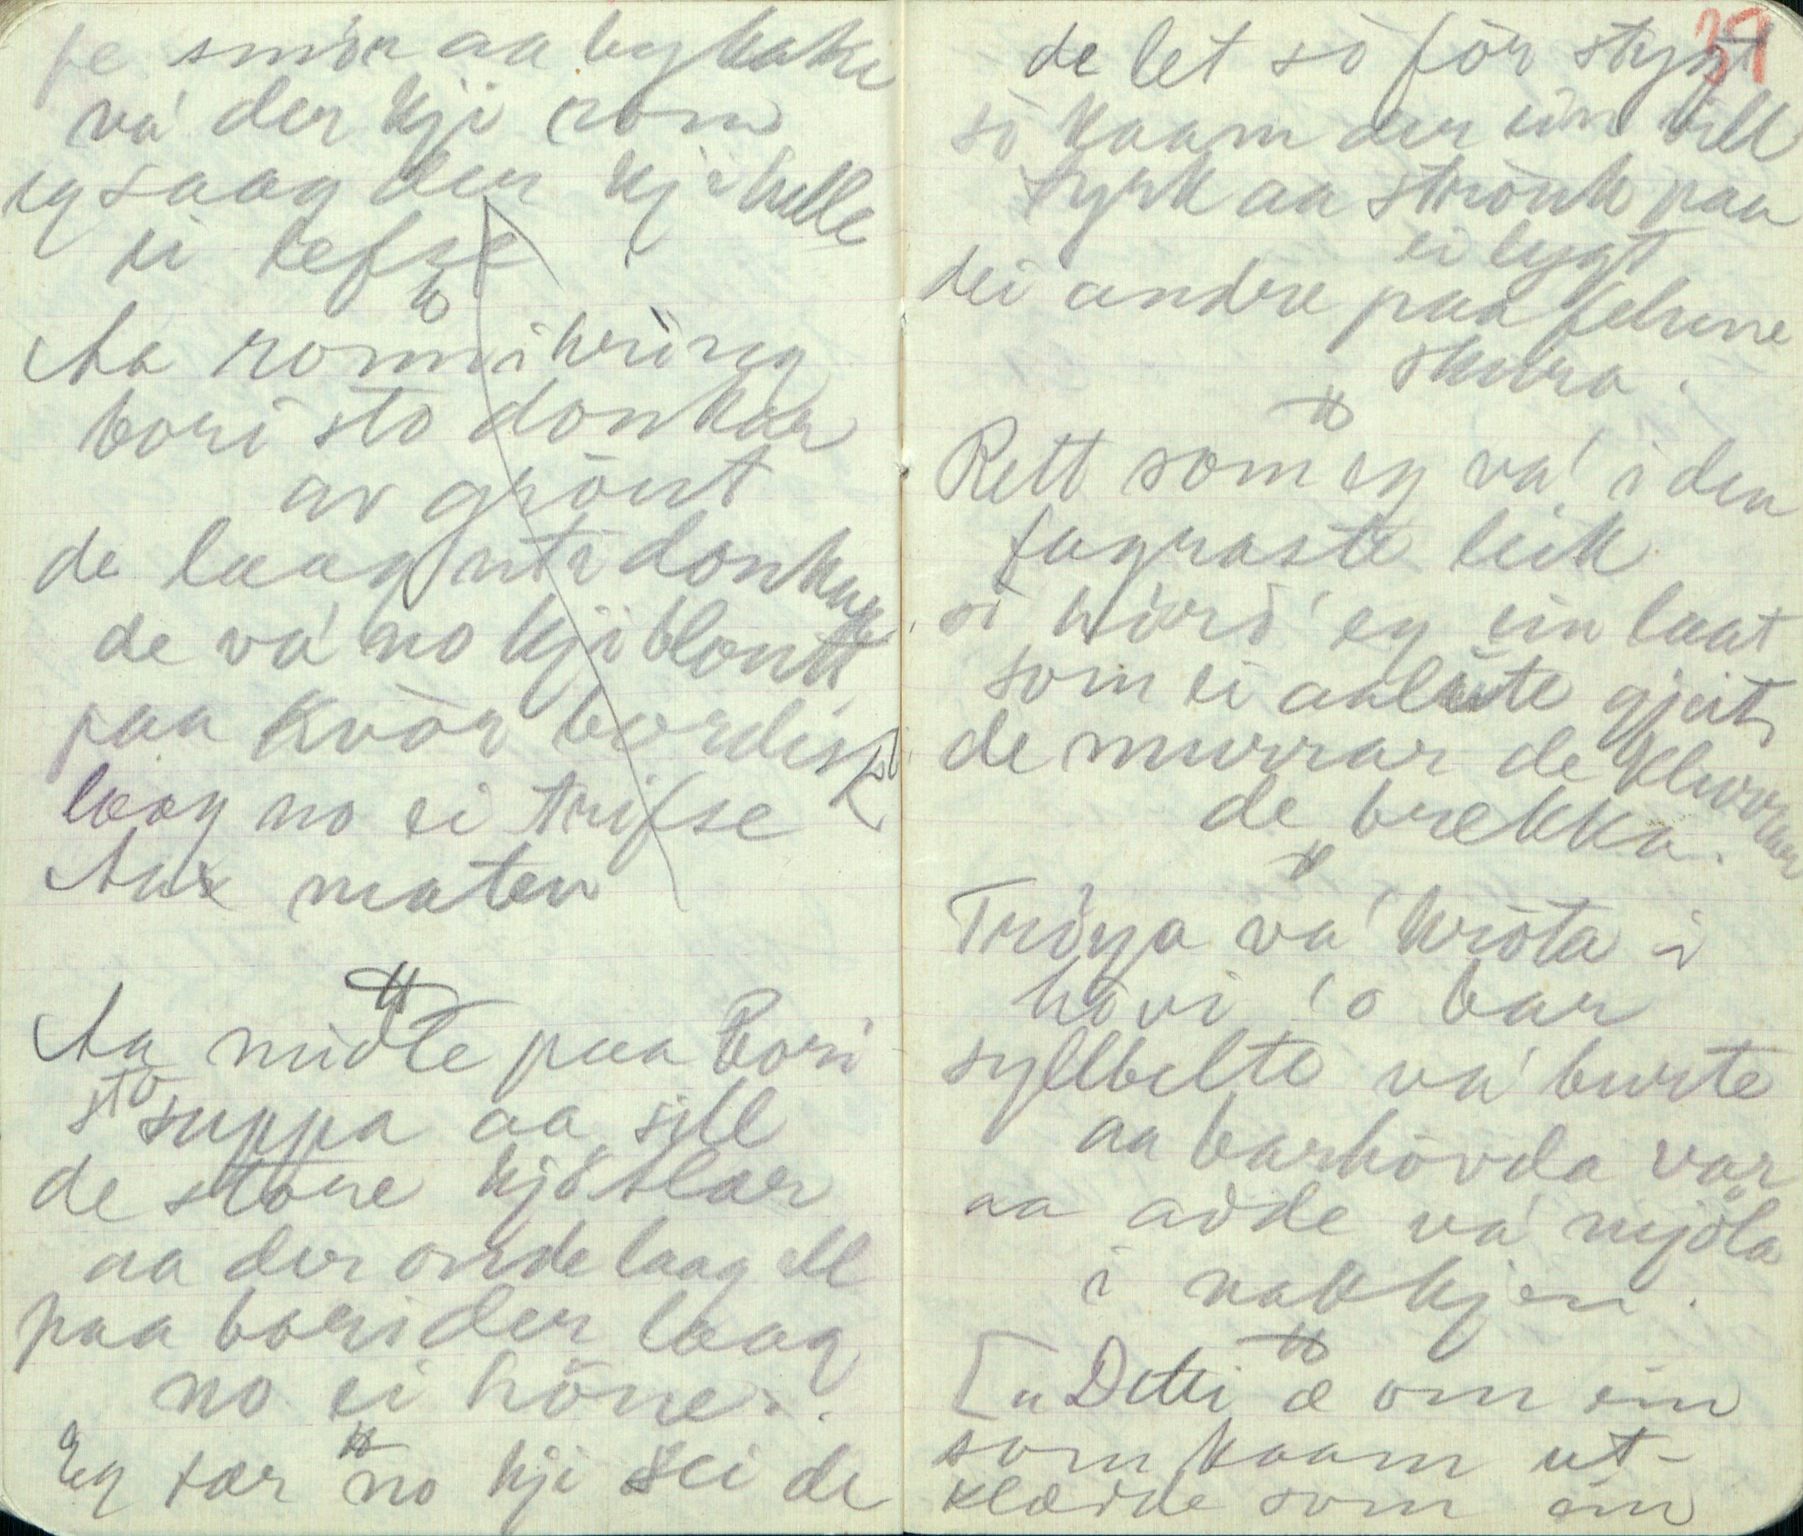 fe smör aa bykake
va' der kji rom
eg saag der kji helle
ei lefse
Aa romi i kring
bori sto donkar
av gröut
de laag ute donkar
de va' no kji blontt
paa kvör bordisk
laag no ei trifse
Aa maten
Aa midte paa Bori
sto suppa aa sill
de störe kjötlar
aa der onde laag ell
paa bori der laag
no ei höne.
Eg tær no kji sei de
39
de let sóför stygt
só kaam der ein vill
tyrk aa strönk paa
ei lygt
dei andre paa felune
skura.
Rett som eg va' i den
fagraste leik
só hörd' eg ein laat
som ei aaleite gjeit
de murrar de klurrar
de brekka.
Tröya va' kröta i
hövi 'o bar
syllbelte va' burte
aa barhövda var
aa adde va' mjöla
i nakkjen.
["Detti æ om ein
som kaam ut-
klædde som ein